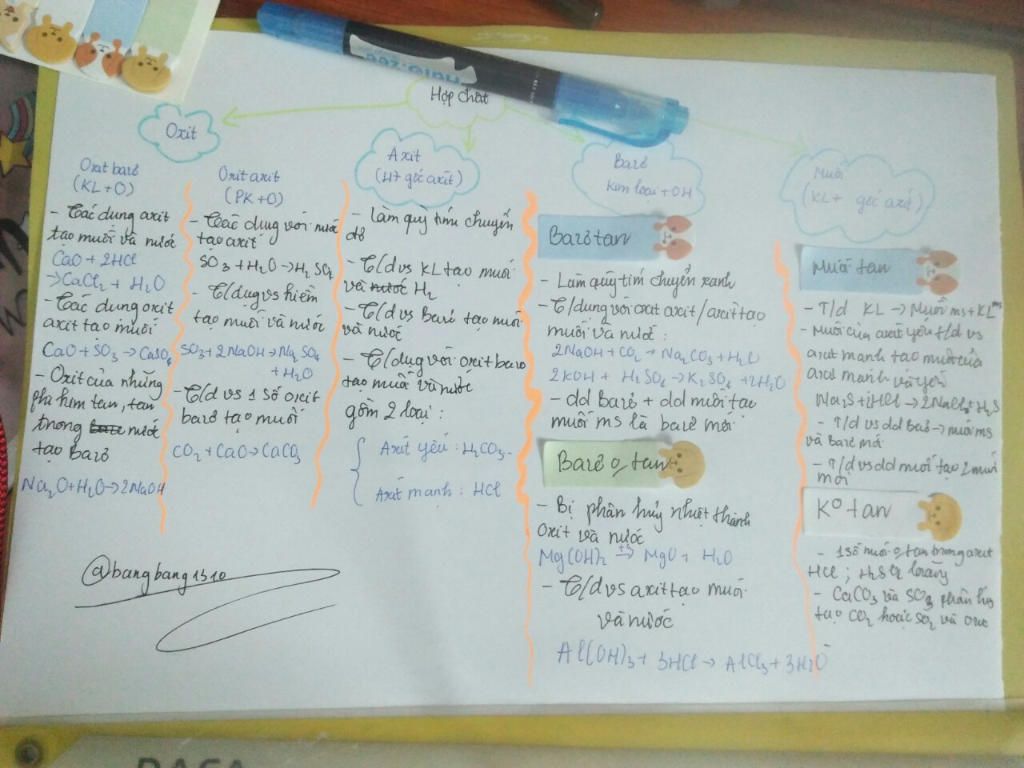 Hợp chất
Oxit
Oxit bazơ
(KL+O)
- Tác dụng axit
tạo muối và nước
CaO + 2HCl
→CaCl₂ + H₂O
- Tác dụng oxit
axit tạo muối
CaO + SO₃→CaSO₄
- Oxit của những
tan, tan
trong nước
tạo bazơ
Na₂O+H₂O→2NaOH
Oxit axit
(PK+O)
- Tác dụng với nước
tạo axit
SO₃+H₂O→H₂SO₄
- T/dụng vs kiềm
tạo muối và nước
SO₃+2NaOH→Na₂SO₄
+H₂O
- T/d vs 1 số oxit
bazơ tạo muối
CO₂+CaO→CaCO₃
Axit
(H+ gốc axit)
- Làm quỳ tím chuyển
đỏ
- T/d vs KL tạo muối
và nước H₂
- T/d vs bazơ tạo muối
và nước
- T/dụng với oxit bazơ
tạo muối và nước
gồm 2 loại :
Axit yếu : H₂CO₃
Axit mạnh : HCl
Bazơ
kim loại+OH
Bazơ tan
- Làm quỳ tím chuyển xanh
- T/dụng với oxit axit/axit tạo
muối và nước :
2NaOH+CO₂→Na₂CO₃+H₂O
2KOH + H₂SO₄→K₂SO₄+2H₂O
- dd Bazơ + dd muối tạo
muối ms là bazơ mới
Bazơ o tan
- Bị phân hủy nhiệt thành
oxit và nước
Mg(OH)₂ →(t°) MgO + H₂O
- T/d vs axit tạo muối
và nước
Al(OH)₃+3HCl→AlCl₃+3H₂O
Muối
(KL+ gốc axit)
Muối tan
- T/d KL → Muối ms+KL ms
- Muối của axit yếu t/d vs
axit mạnh tạo muối của
axit mạnh và yếu
Na₂S+2HCl→2NaCl+H₂S
- T/d vs dd Bazơ→muối ms
và bazơ mới
- T/d vs dd muối tạo 2 muối
mới
K° tan
- 1 số muối o tan trong axit
HCl ; H₂SO₄ loãng
- CaCO₃ và SO₃ phân hủy
tạo CO₂ hoặc SO₂ và
@bangbang1310